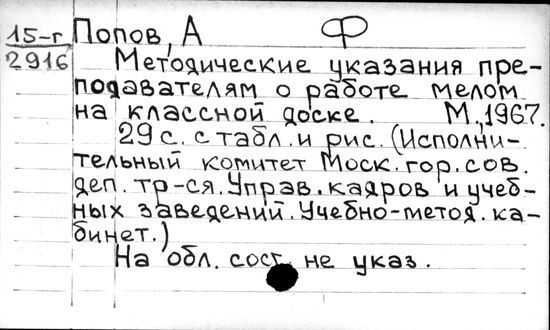 15-г Попов, А Ф
2916 Методические указания пре-
подавателям о работе мелом
на классной доске. М., 1967.
29 с. с табл. и рис. (Исполни-
тельный комитет Моск. гор. сов.
деп. тр-ся. Управ. кадров и учеб-
ных заведений. Учебно-метод. ка-
бинет.)
На обл. сост. не указ.